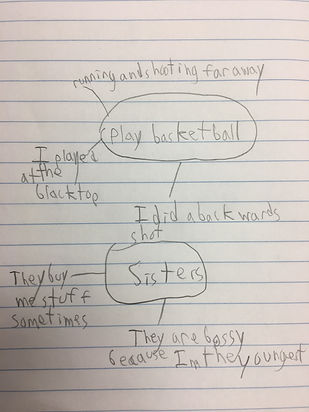 running and shooting far away
play basketball
I played
at the
blacktop
I did a backwards
shot
Sisters
They buy
me stuff
sometimes
They are bossy
because I'm the youngest